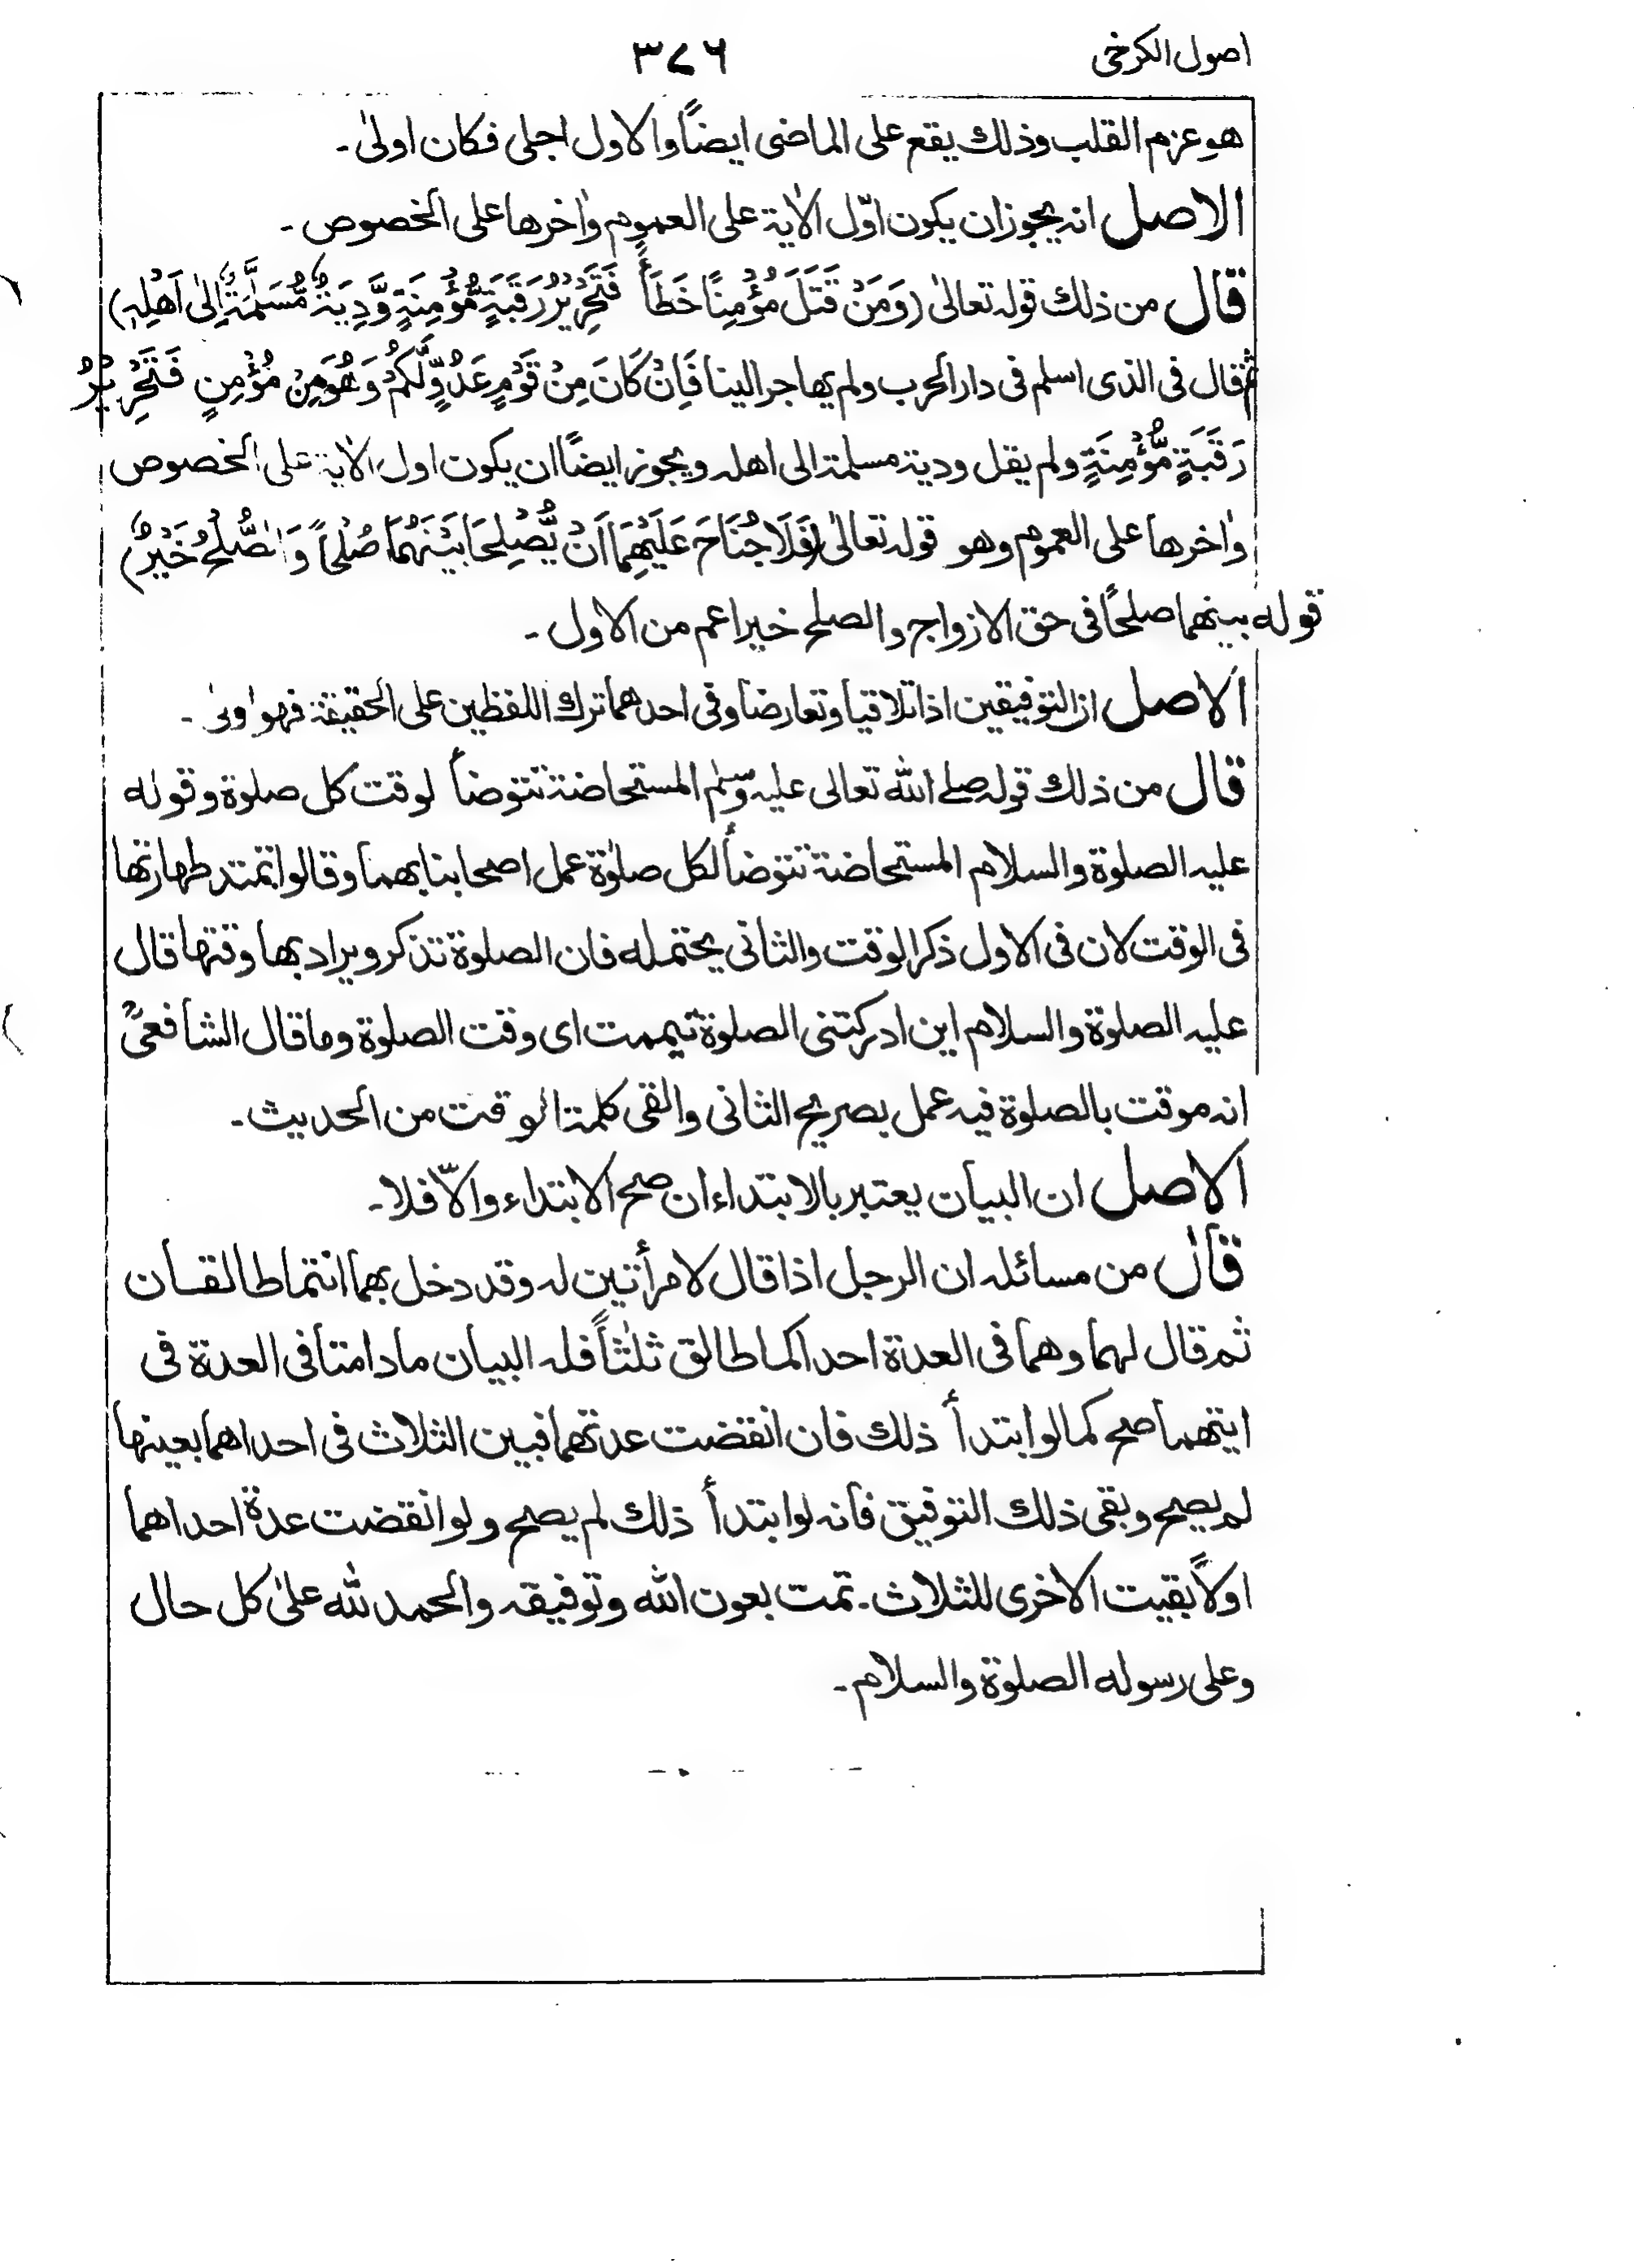 اصول الكرخى ٣٧٦
هو عزم القلب وذلك يقع على الماضى ايضاً والاول اجلى فكان اولىٰ ـ
الاصل انه يجوز ان يكون اوّل الاٰية على العموم واٰخرها على الخصوص ـ
قال من ذلك قوله تعالىٰ (وَمَنْ قَتَلَ مُؤْمِنًا خَطَأً فَتَحْرِيْرُ رَقَبَةٍ مُّؤْمِنَةٍ وَّدِيَةٌ مُّسَلَّمَةٌ اِلىٰ اَهْلِهٖ)
ثم قال فى الذى اسلم فى دار الحرب ولم يهاجر الينا فَاِنْ كَانَ مِنْ قَوْمٍ عَدُوٍّ لَّكُمْ وَهُوَ مُؤْمِنٌ فَتَحْرِيْرُ
رَقَبَةٍ مُّؤْمِنَةٍ ولم يقل ودية مسلمة الى اهله ويجوز ايضاً ان يكون اول الاٰية على الخصوص
واٰخرها على العموم وهو قوله تعالىٰ (فَلَا جُنَاحَ عَلَيْهِمَا اَنْ يُّصْلِحَا بَيْنَهُمَا صُلْحاً وَالصُّلْحُ خَيْرٌ)
قوله بينهما صلحاً فى حق الازواج والصلح خير اعم من الاول ـ
الاصل ان التوفيقين اذا تلاقيا وتعارضا وفى احدهما ترك اللفظين على الحقيقة فهو اولىٰ ـ
قال من ذلك قوله صلے الله تعالى عليه وسلم المستحاضة تتوضأ لوقت كل صلوة وقوله
عليه الصلوة والسلام المستحاضة تتوضأ لكل صلوٰة عمل اصحابنا بهما وقالوا تمتد طهارتها
فى الوقت لان فى الاول ذكر الوقت والثانى يحتمله فان الصلوة تذكر ويراد بها وقتها قال
عليه الصلوة والسلام اين ادركتنى الصلوة تيممت اى وقت الصلوة وما قال الشافعىؒ
انه موقت بالصلوة فيه عمل بصريح الثانى والقى كلمة الوقت من الحديث ـ
الاصل ان البيان يعتبر بالابتداء ان صح الابتداء والّا فلا ـ
قال من مسائله ان الرجل اذا قال لامرأتين له وقد دخل بهما انتما طالقـان
ثم قال لهما وهما فى العدة احداكما طالق ثلٰثاً فله البيان ما دامتا فى العدة فى
ايتهما صح كما لو ابتدأ ذلك فان انقضت عدتهما فبين الثلاث فى احداهما بعينها
لم يصح وبقى ذلك التوفيق فانه لو ابتدأ ذلك لم يصح ولو انقضت عدة احداهما
اولاً بقيت الاخرى للثلاث ـ تمت بعون الله وتوفيقه والحمد لله علىٰ كل حال
وعلى رسوله الصلوة والسلام ـ